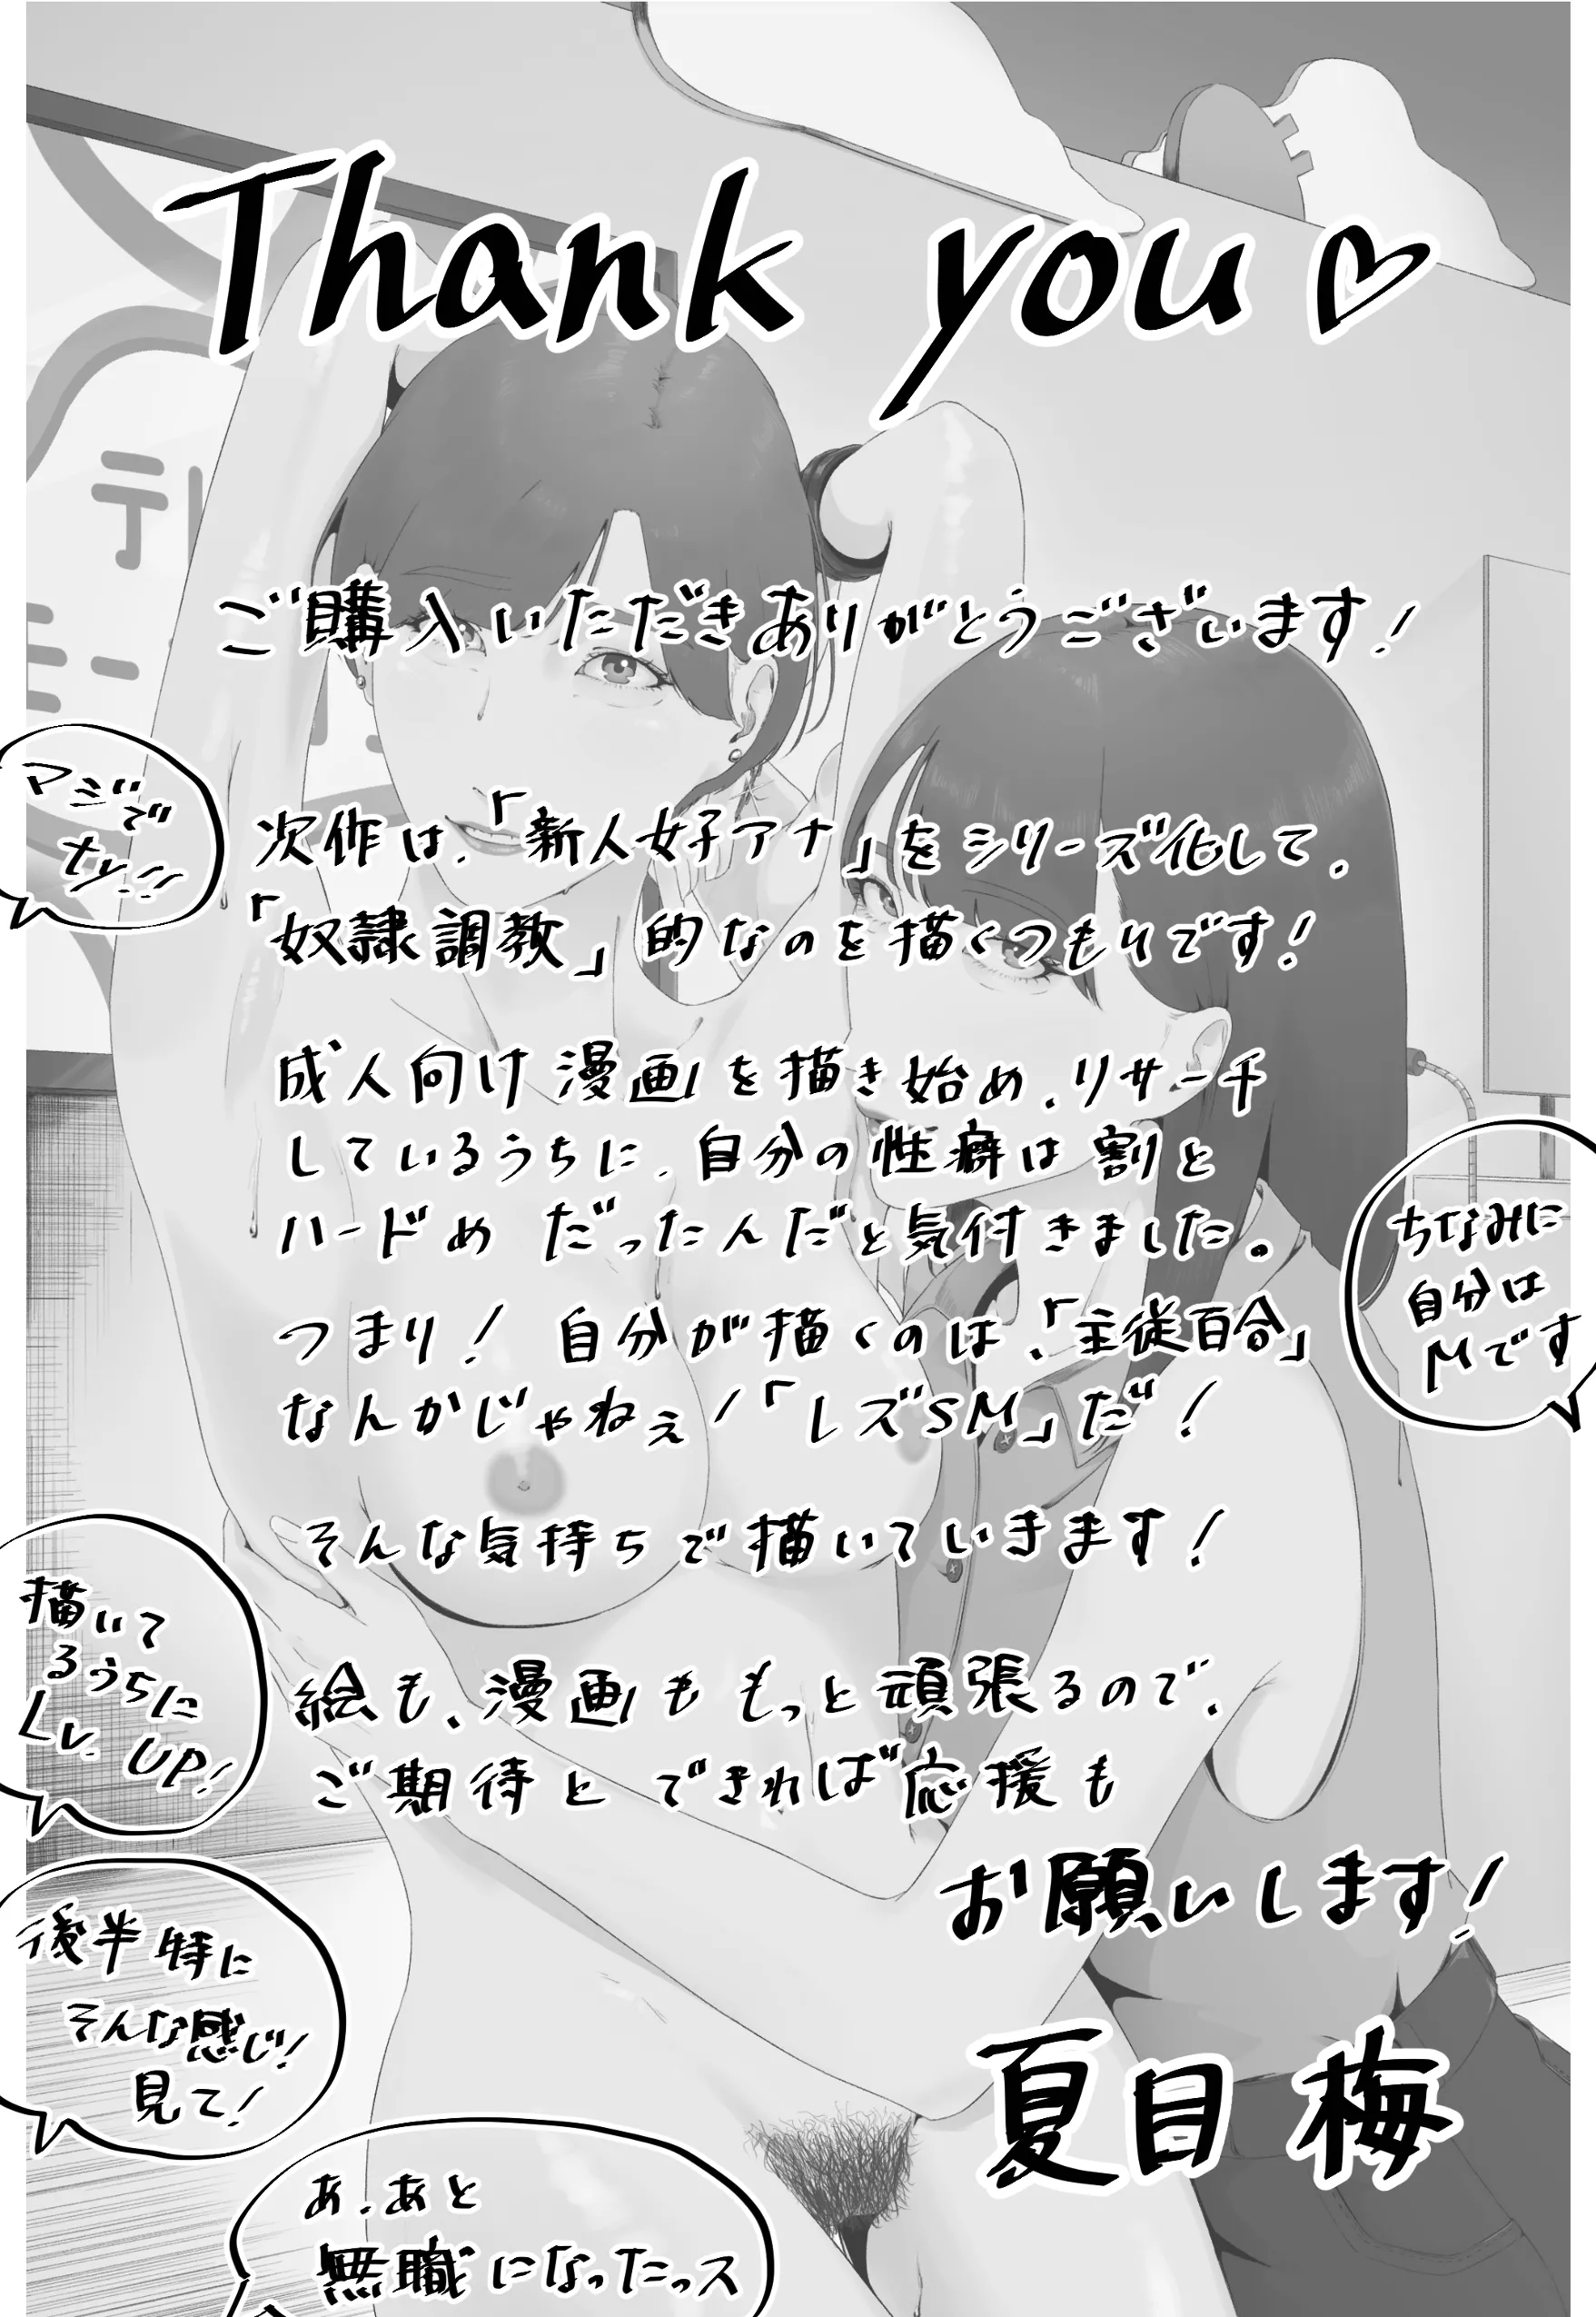 Thank you♡
ご購入いただきありがとうございます!
マジで
すか!!
次作は、「新人女子アナ」をシリーズ化して、
「奴隷調教」的なのを描くつもりです!
成人向け漫画を描き始め、リサーチ
しているうちに、自分の性癖は割と
ハードめだったんだと気付きました。
ちなみに
自分は
Mです
つまり!自分が描くのは、「主従百合」
なんかじゃねぇ!「レズSM」だ!
そんな気持ちで描いていきます!
描いて
るうちに
Lv.UP!
絵も、漫画ももっと頑張るので、
ご期待とできれば応援も
お願いします!
後半特に
そんな感じ!
見て!
夏目梅
あ、あと
無職になったっス